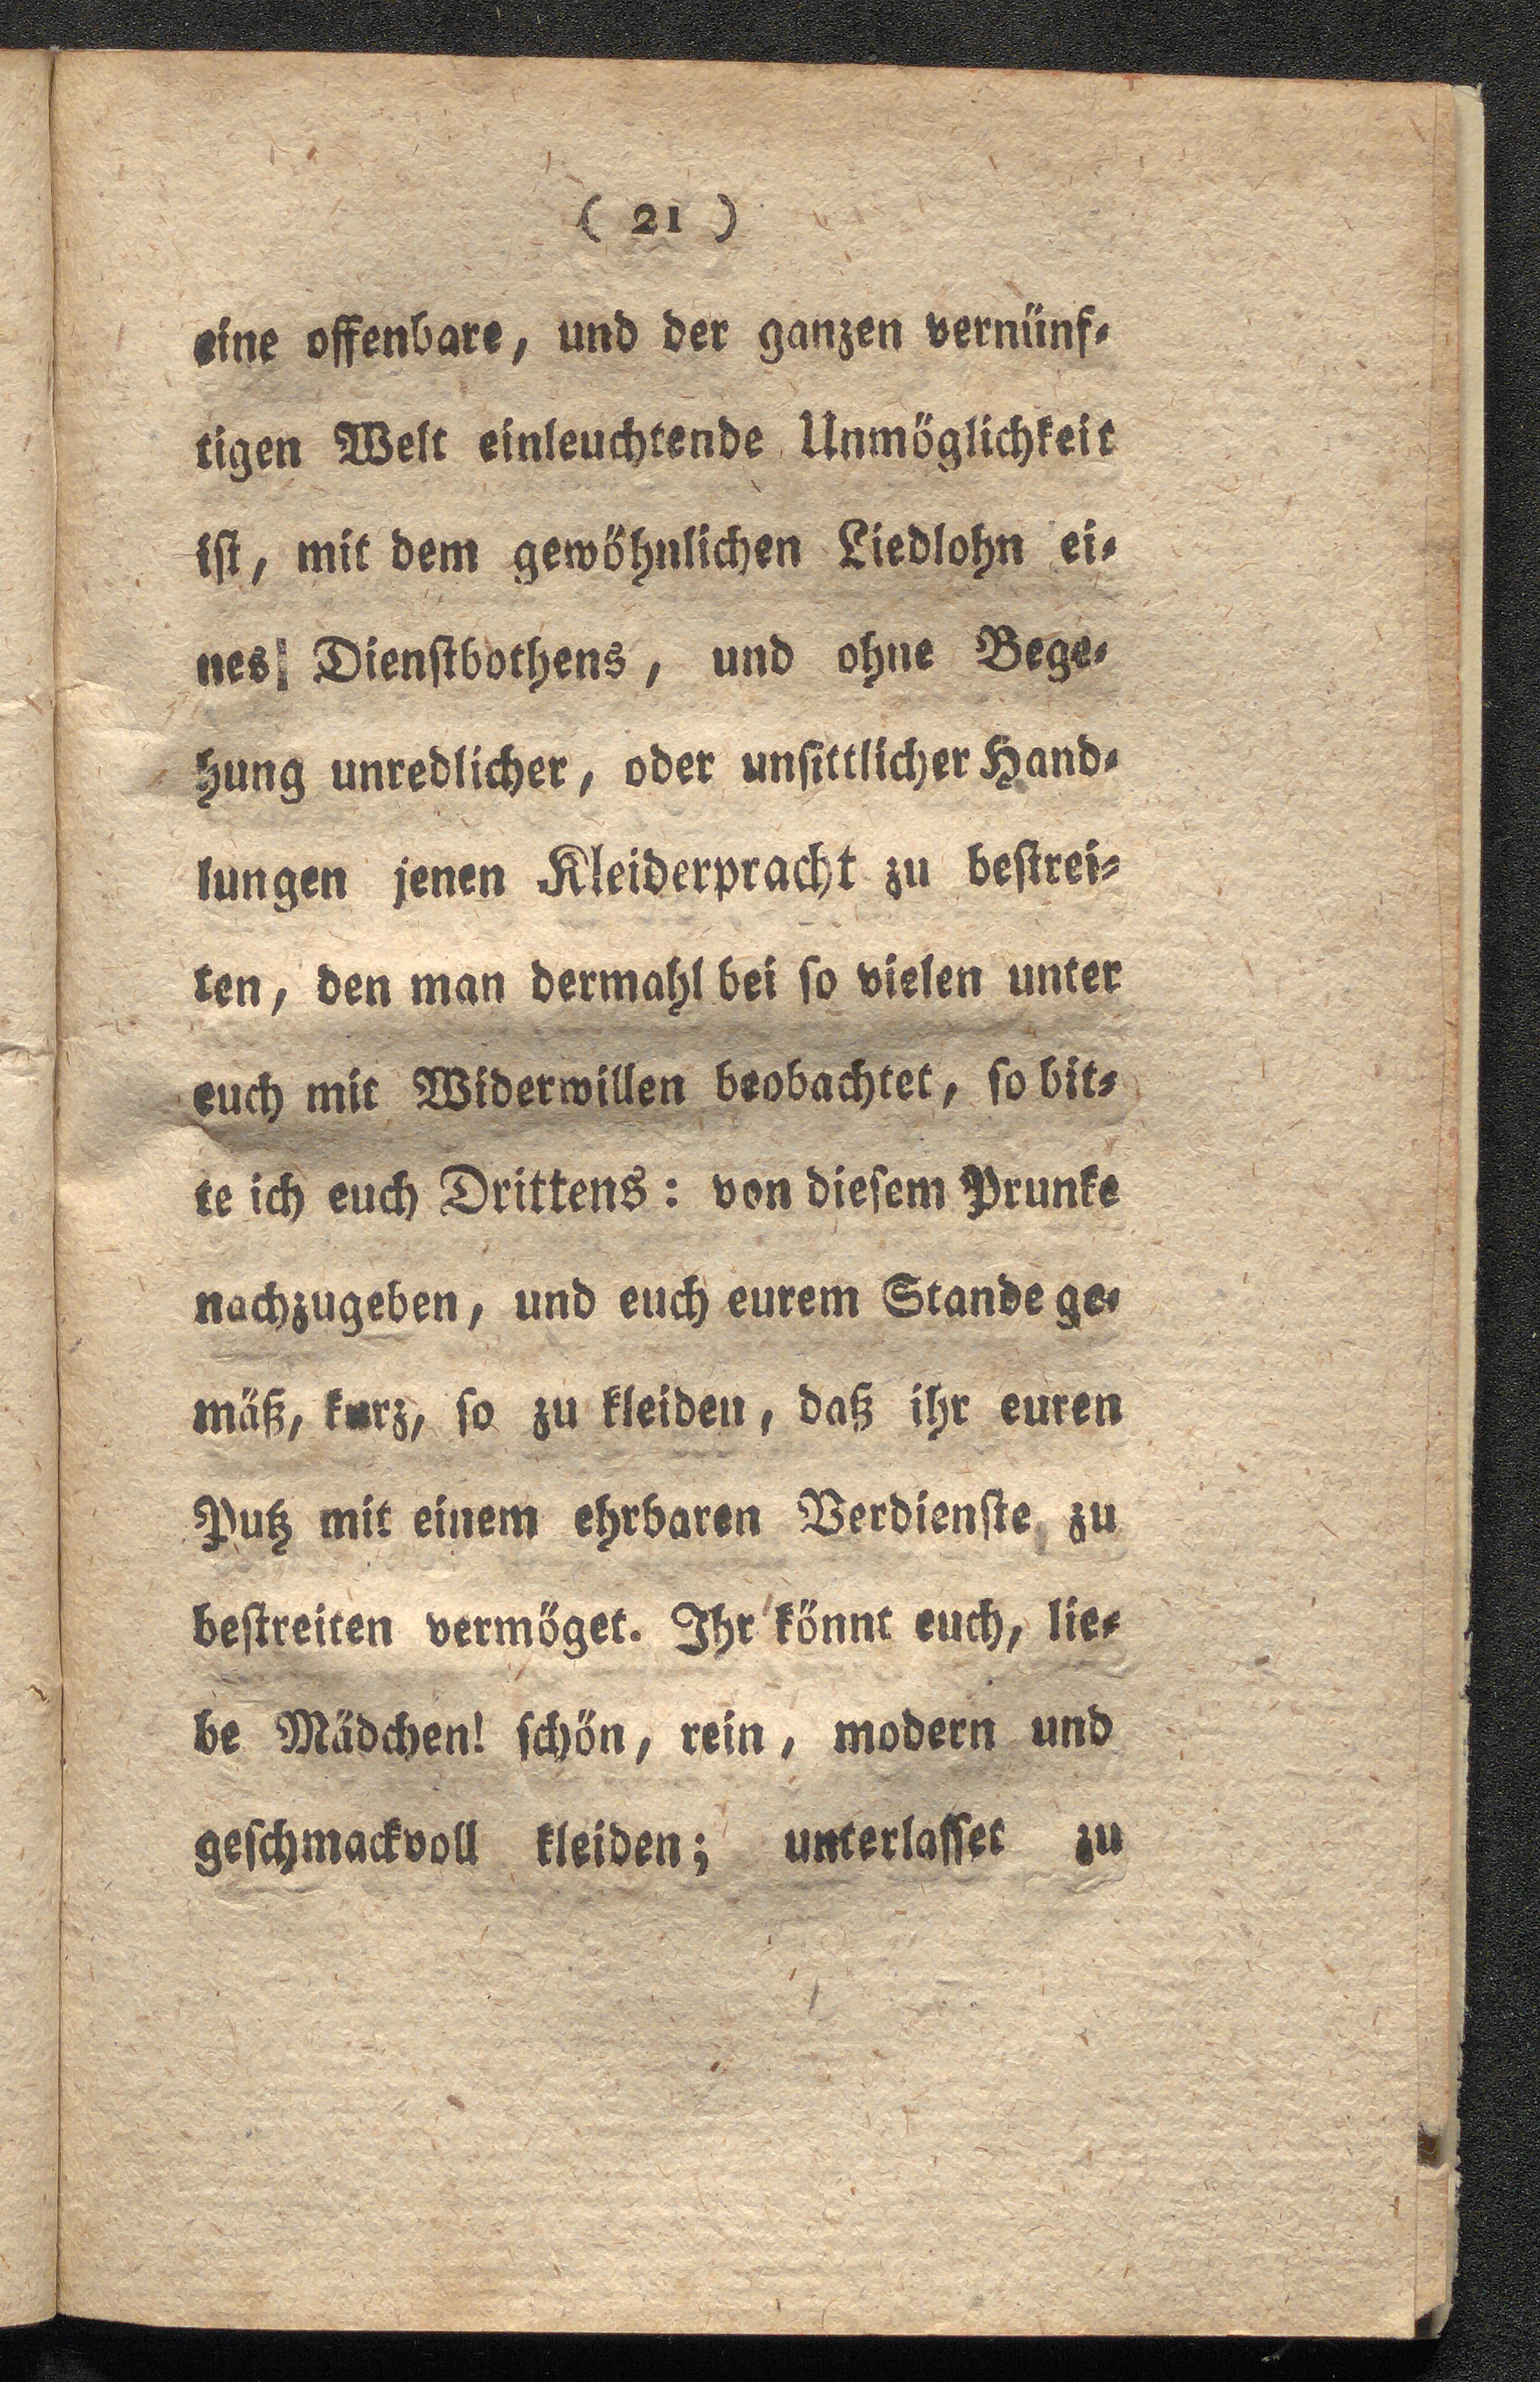 ( 21 )
eine offenbare, und der ganzen vernünf-
tigen Welt einleuchtende Unmöglichkeit
ist, mit dem gewöhnlichen Liedlohn ei-
nes Dienstbothens, und ohne Bege-
hung unredlicher, oder unsittlicher Hand-
lungen jenen Kleiderpracht zu bestrei-
ten, den man dermahl bei so vielen unter
euch mit Widerwillen beobachtet, so bit-
te ich euch Drittens: von diesem Prunke
nachzugeben, und euch eurem Stande ge-
mäß, kurz, so zu kleiden, daß ihr euren
Putz mit einem ehrbaren Verdienste zu
bestreiten vermöget. Ihr könnt euch, lie-
be Mädchen! schön, rein, modern und
geschmackvoll kleiden; unterlasset zu